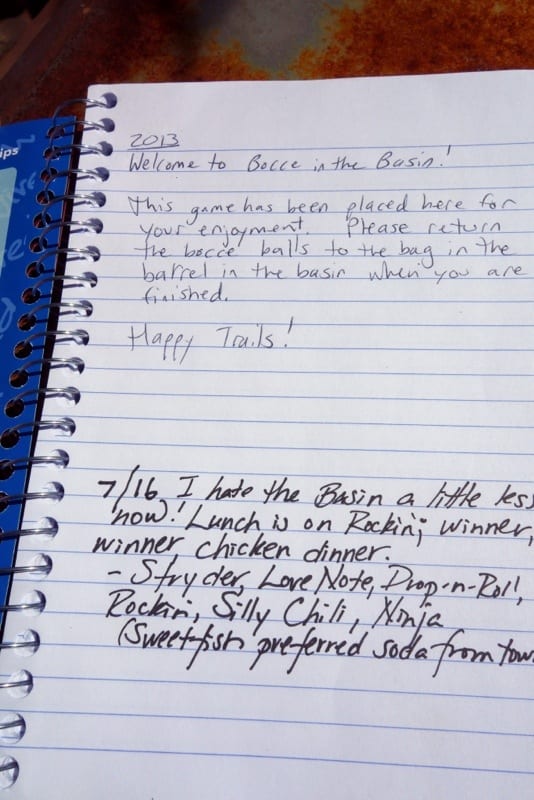 ips
2013
Welcome to Bocce in the Basin!
This game has been placed here for
your enjoyment. Please return
the bocce balls to the bag in the
barrel in the basin when you are
finished.
Happy Trails!
7/16 I hate the Basin a little less
now! Lunch is on Rockin; winner,
winner chicken dinner.
- Stryder, Love Note, Drop-n-Roll,
Rockin, Silly Chili, Ninja
(Sweet-fish preferred soda from tow